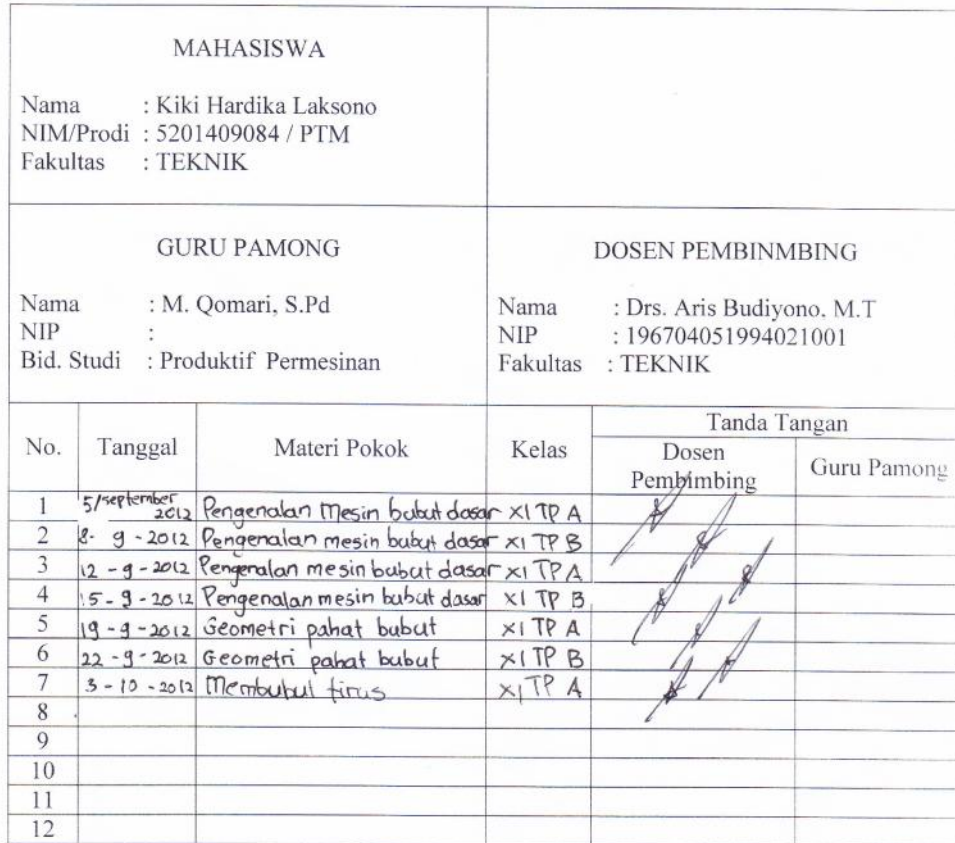 MAHASISWA
Nama : Kiki Hardika Laksono
NIM/Prodi : 5201409084 / PTM
Fakultas : TEKNIK
GURU PAMONG
Nama : M. Qomari, S.Pd
NIP :
Bid. Studi : Produktif Permesinan
DOSEN PEMBINMBING
Nama : Drs. Aris Budiyono. M.T
NIP : 196704051994021001
Fakultas : TEKNIK
No. Tanggal Materi Pokok Kelas Tanda Tangan
Dosen Pembimbing Guru Pamong
1 5/september 2012 Pengenalan Mesin bubut dasar XI TP A
2 8-9-2012 Pengenalan mesin bubut dasar XI TP B
3 12-9-2012 Pengenalan mesin bubut dasar XI TP A
4 15-9-2012 Pengenalan mesin bubut dasar XI TP B
5 19-9-2012 Geometri pahat bubut XI TP A
6 22-9-2012 Geometri pahat bubut XI TP B
7 3-10-2012 Membubut tirus XI TP A
8
9
10
11
12